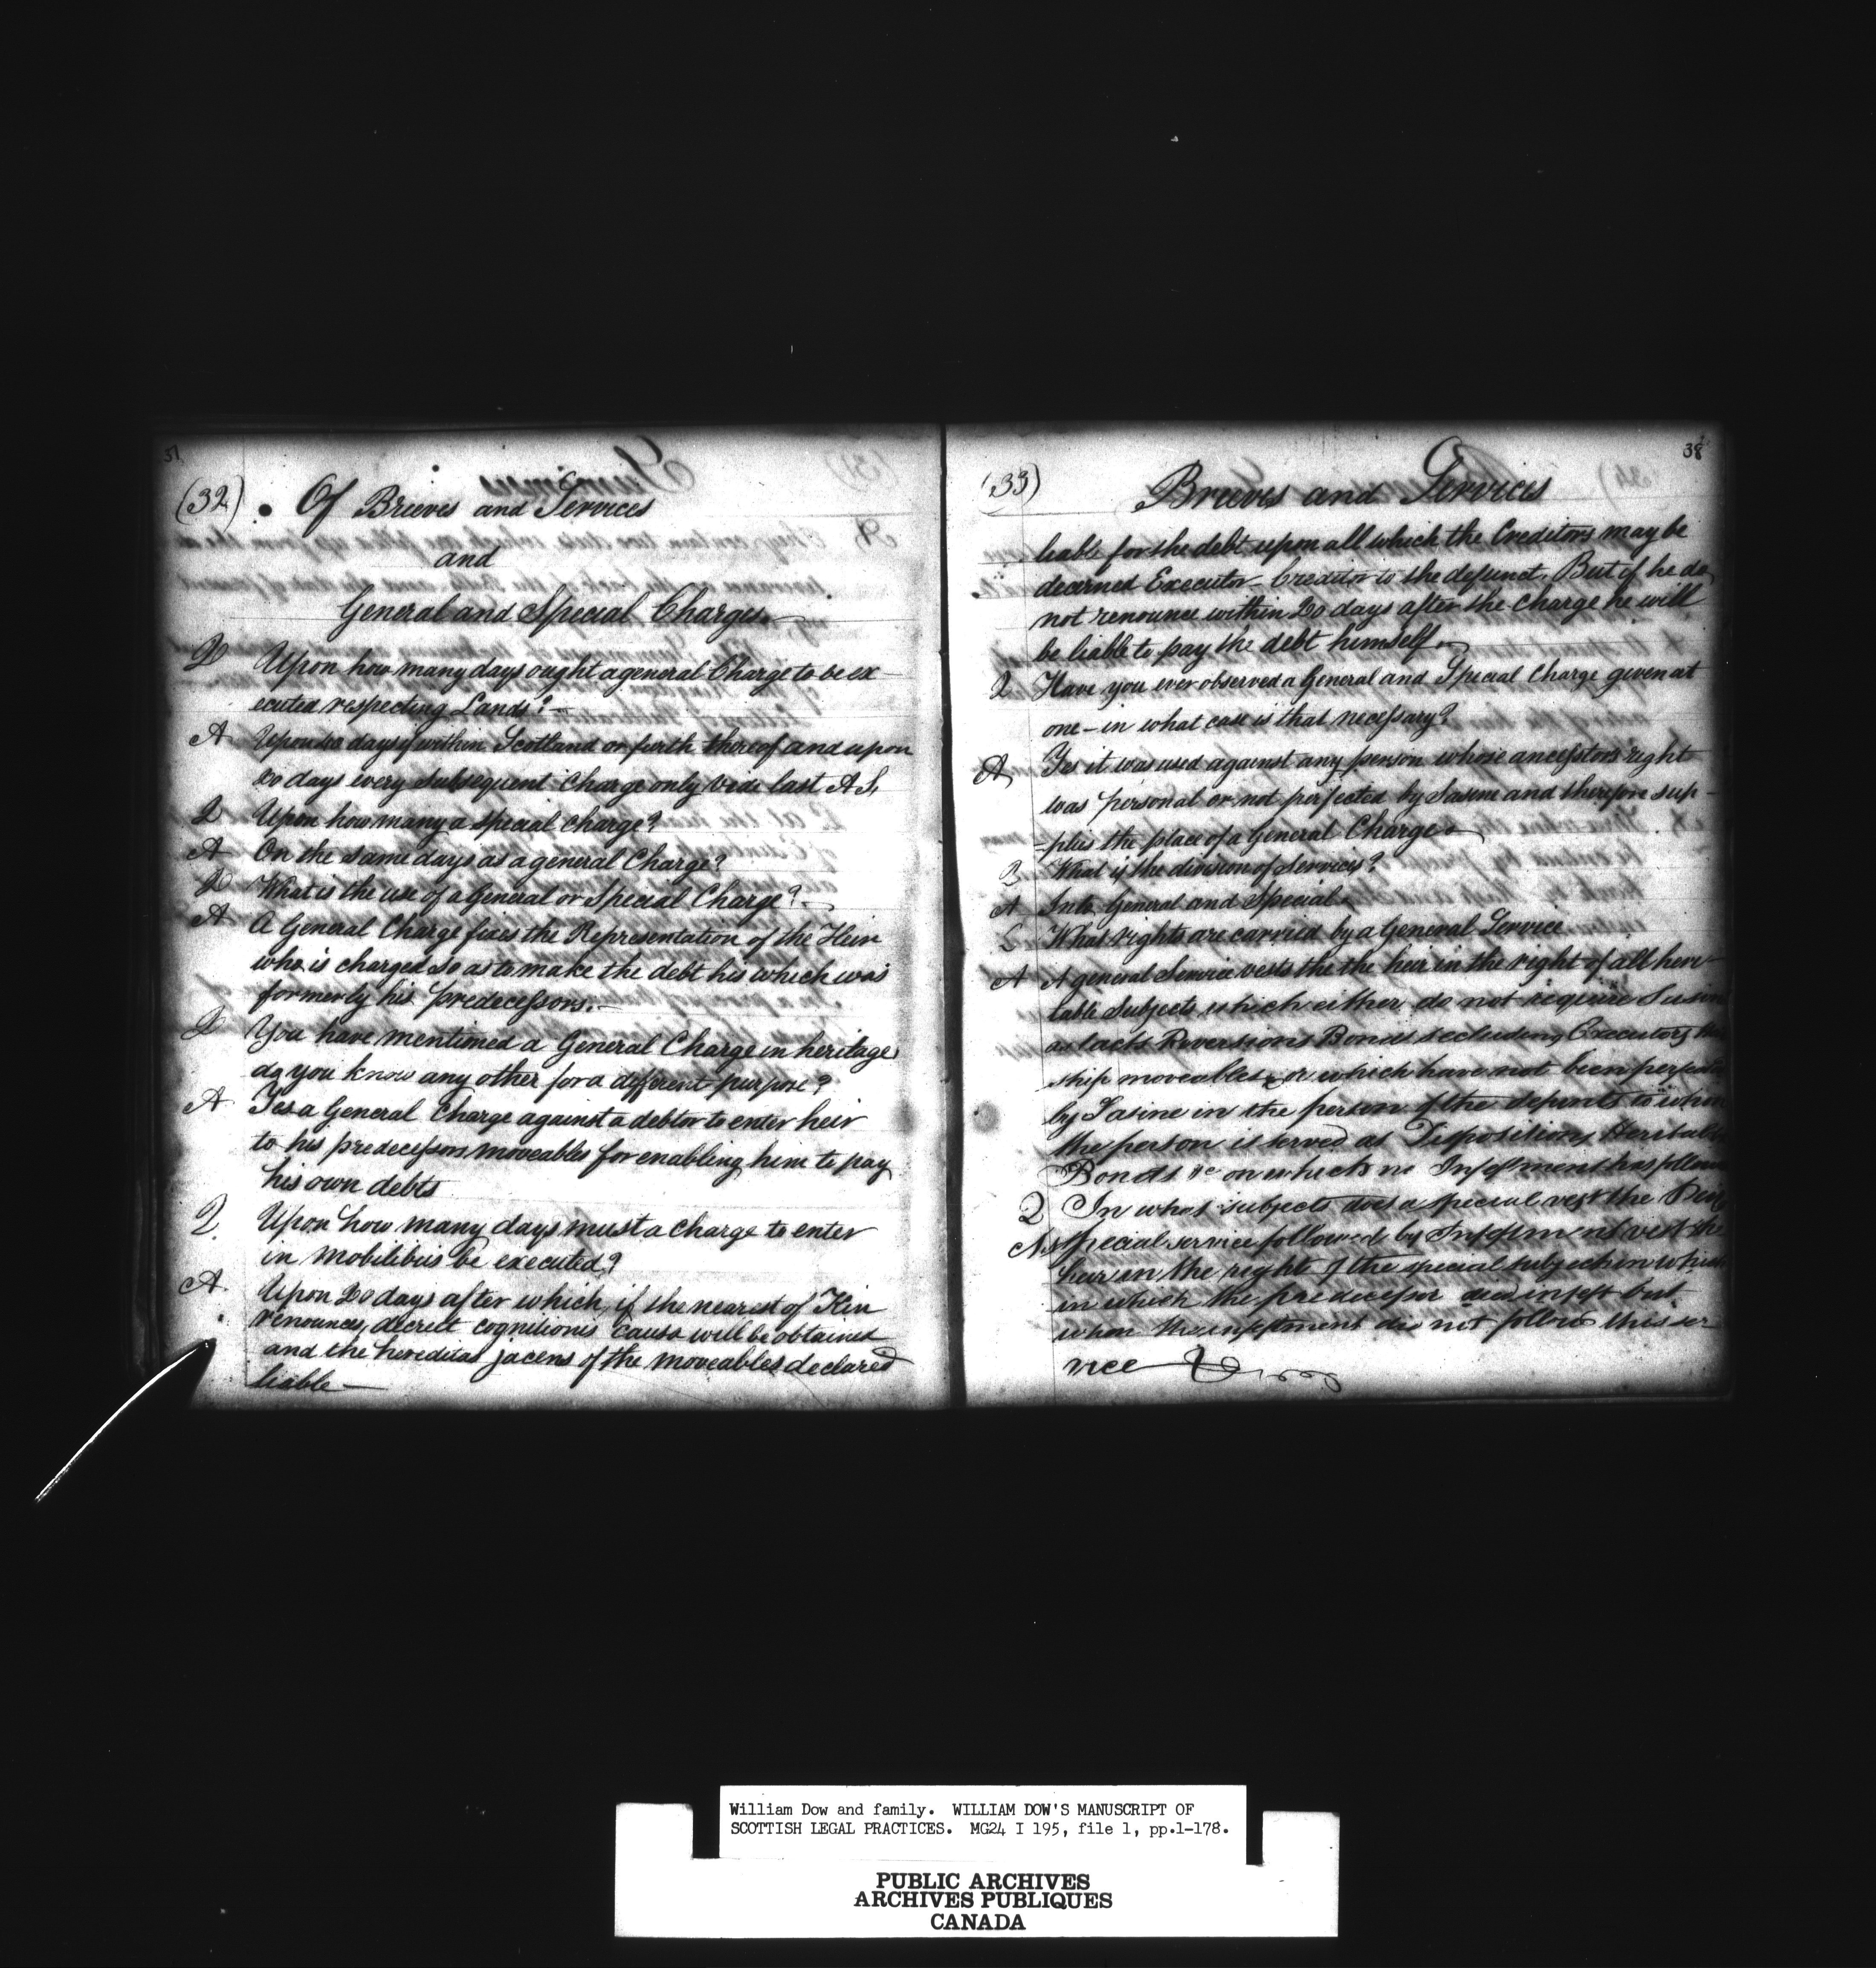 37
(32) Of Brieves and Services
and
General and Special Charges.
Q Upon how many days ought a general Charge to be ex-
ecuted respecting Lands?
A Upon 20 days if within Scotland or furth thereof and upon
20 days every subsequent Charge only vide last A S,
Q Upon how many a special charge?
A On the same days as a general Charge?
Q What is the use of a General or Special Charge?
A A General Charge fixes the Representation of the Heir
who is charged so as to make the debt his which was
formerly his predecessors.
Q You have mentioned a General Charge in heritage,
do you know any other for a different purpose?
A Yes a General Charge against a debtor to enter heir
to his predecessors moveables for enabling him to pay
his own debts
Q. Upon how many days must a charge to enter
in mobilibus be executed?
A. Upon 20 days after which, if the nearest of Kin
renounces, decreet cognitionis causa will be obtained
and the hereditas jacens of the moveables declared
liable
38
(33) Brieves and Services
liable for the debt upon all which the Creditors may be
decerned Executor-Creditor to the defunct. But if he do
not renounce within 20 days after the charge he will
be liable to pay the debt himself.
Q Have you ever observed a General and Special Charge given at
one - in what case is that necessary?
A Yes it was used against any person whose ancestors right
was personal or not perfected by Sasine and therefore sup-
-plies the place of a General Charge
Q What is the division of Services?
A Into General and Special.
Q What rights are carried by a General Service
A A general Service vests the the heir in the right of all heri-
table Subjects which either do not require
as tacks Reversions Bonds secluding Executors
ship moveables, or which have not been
by Sasine in the person of the defunct to whom
the person is served as Dispositions
Bonds &c on which no Infeftment has
Q In what subjects does a special vest the
A Special service followed by Infeftment vest the
heir in the right of the special subject in which
in which the predecessor died infeft but
when the infeftment did not follow this ser-
vice
William Dow and family. WILLIAM DOW'S MANUSCRIPT OF
SCOTTISH LEGAL PRACTICES. MG24 I 195, file 1, pp.1-178.
PUBLIC ARCHIVES
ARCHIVES PUBLIQUES
CANADA